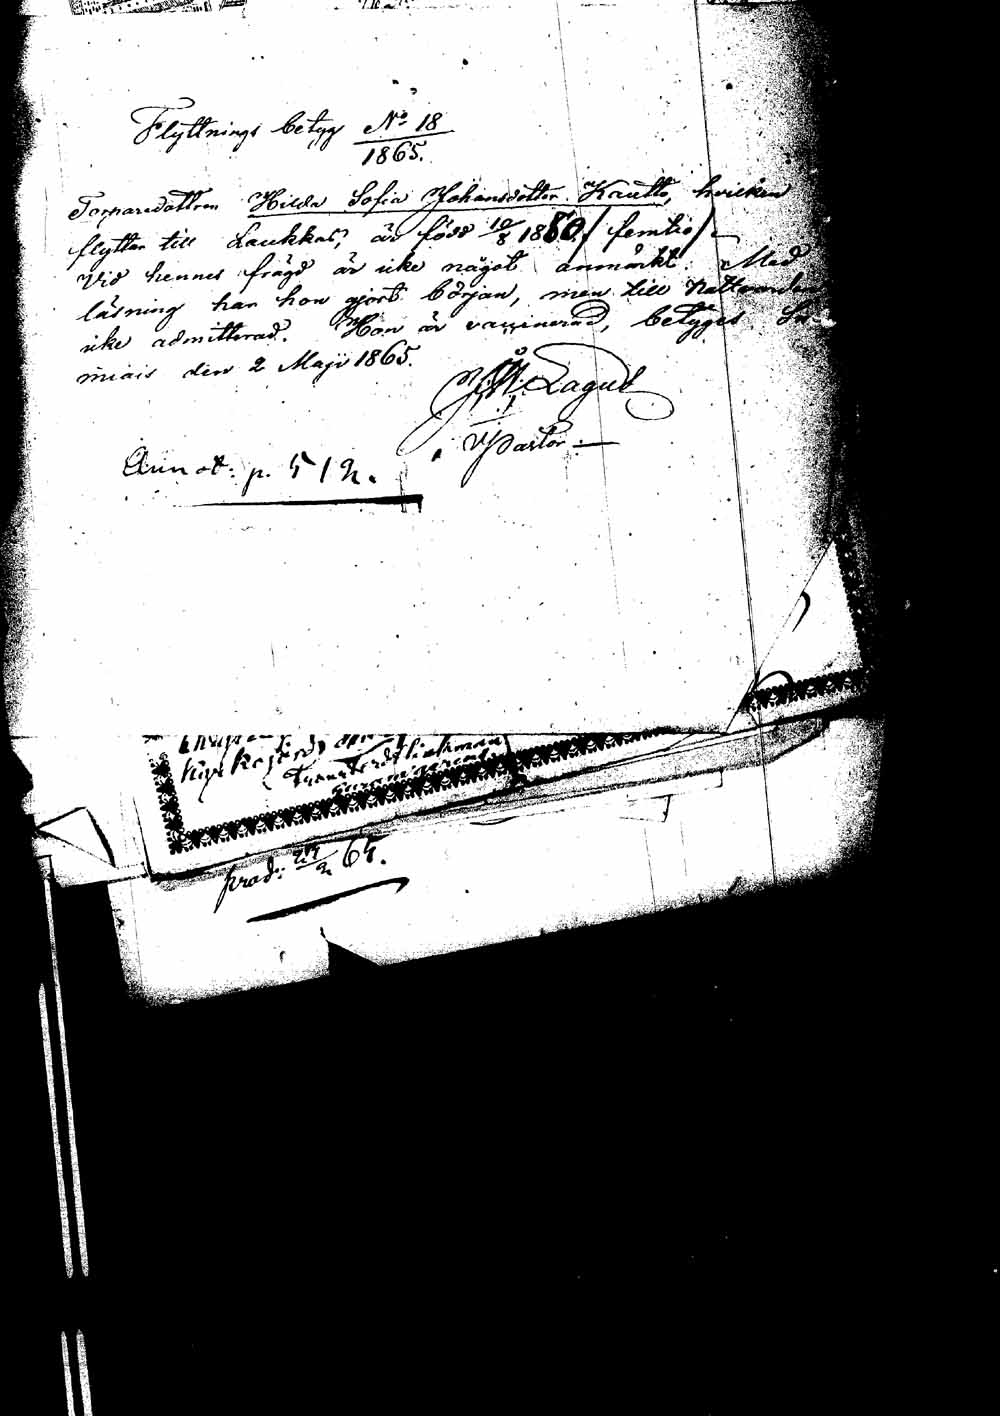 Flyttnings betyg No 18
1865.
Torparedottren Hilda Sofia Johansdotter Kautto, hvilken
flyttar till Laukkas, är född 10/8 1850 / femtio /.
Vid hennes frägd är icke något anmärkt. Med
läsning har hon gjort början, men till nattvarden
icke admitterad. Hon är vaccinerad, betyges
den 2 Maji 1865.
Lagus
V Pastor
Annot: p. 512.
prod: 65.